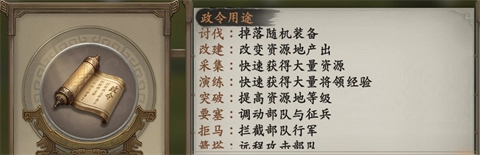 政令用途
讨伐：掉落随机装备
改建：改变资源地产出
采集：快速获得大量资源
演练：快速获得大量将领经验
突破：提高资源地等级
要塞：调动部队与征兵
拒马：拦截部队行军
箭塔：远程攻击部队